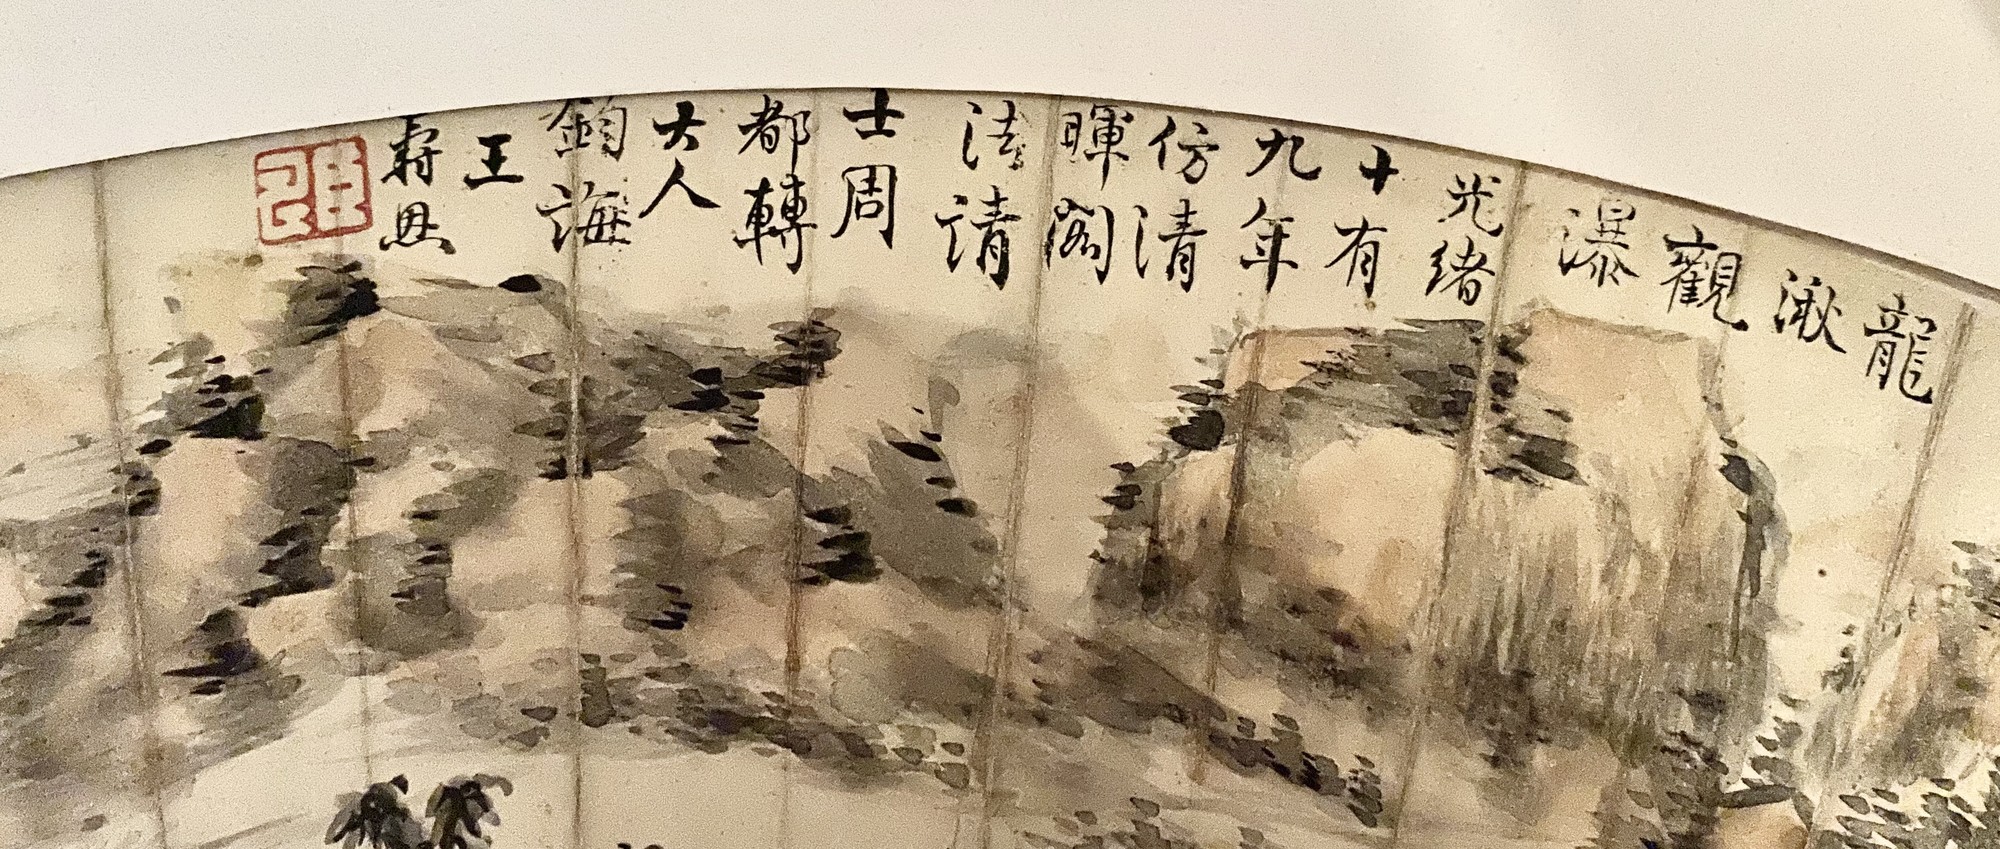 龍
湫
觀
瀑
光緒
十有
九年
仿清
暉閣
法請
士周
都轉
大人
鈞誨
王
壽思